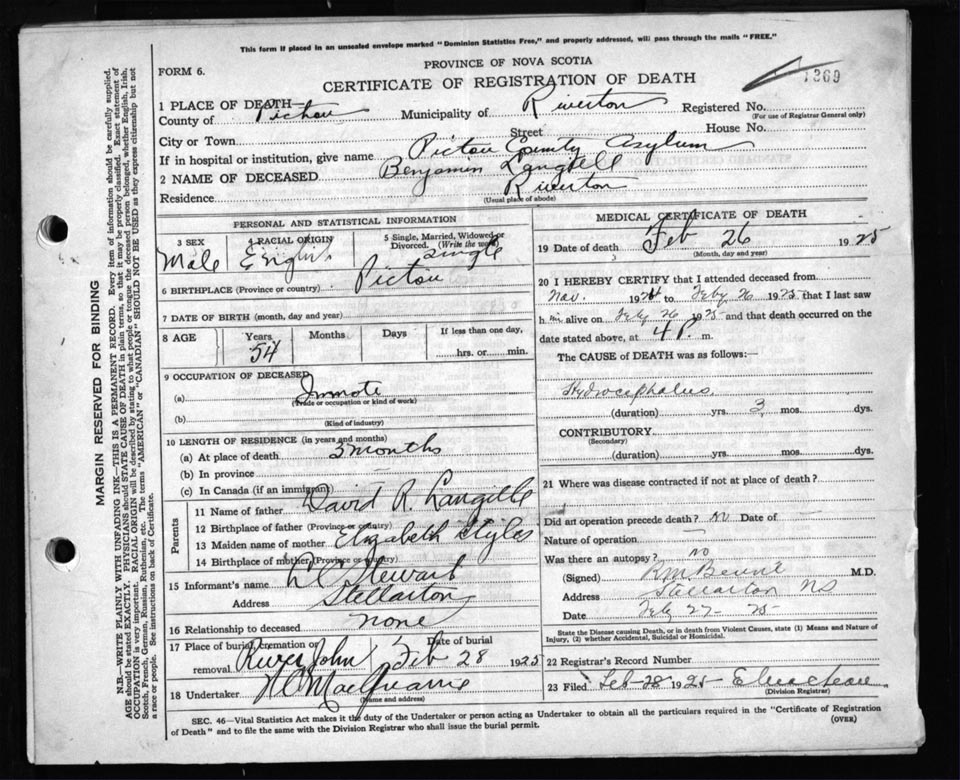 This form if placed in an unsealed envelope marked "Dominion Statistics Free," and properly addressed, will pass through the mails "FREE."
FORM 6.
PROVINCE OF NOVA SCOTIA
CERTIFICATE OF REGISTRATION OF DEATH
1369
1 PLACE OF DEATH—
County of Pictou Municipality of Riverton Registered No.
(For use of Registrar General only)
City or Town Street House No.
If in hospital or institution, give name Pictou County Asylum
2 NAME OF DECEASED Benjamin Langille
Residence Riverton
(Usual place of abode)
PERSONAL AND STATISTICAL INFORMATION
3 SEX Male
4 RACIAL ORIGIN English
5 Single, Married, Widowed or Divorced. (Write the word) Single
6 BIRTHPLACE (Province or country) Pictou
7 DATE OF BIRTH (month, day and year)
8 AGE Years 54 Months Days If less than one day, hrs. or min.
9 OCCUPATION OF DECEASED
(a) Inmate
(Trade or occupation or kind of work)
(b)
(Kind of industry)
10 LENGTH OF RESIDENCE (in years and months)
(a) At place of death 3 months
(b) In province
(c) In Canada (if an immigrant)
Parents
11 Name of father David R. Langille
12 Birthplace of father (Province or country)
13 Maiden name of mother Elizabeth Styles
14 Birthplace of mother (Province or country)
15 Informant's name Stewart
Address Stellarton
16 Relationship to deceased none
17 Place of burial, cremation or removal River John Date of burial Feb 28 1925
18 Undertaker
(Name and address)
MEDICAL CERTIFICATE OF DEATH
19 Date of death Feb 26 1925
(Month, day and year)
20 I HEREBY CERTIFY that I attended deceased from
Nov. 1924 to Feby 26 1925 that I last saw
h im alive on Feby 26 1925 and that death occurred on the
date stated above, at 4 P. m.
The CAUSE of DEATH was as follows:—
Hydrocephalus
(duration) yrs. 3 mos. dys.
CONTRIBUTORY
(Secondary)
(duration) yrs. mos. dys.
21 Where was disease contracted if not at place of death?
Did an operation precede death? No Date of
Nature of operation
Was there an autopsy? No
(Signed) M.D.
Address Stellarton NS
Date Feby 27 - 25
State the Disease causing Death, or in death from Violent Causes, state (1) Means and Nature of
Injury, (2) whether Accidental, Suicidal or Homicidal.
22 Registrar's Record Number
23 Filed Feb-28 1925
(Division Registrar)
SEC. 46—Vital Statistics Act makes it the duty of the Undertaker or person acting as Undertaker to obtain all the particulars required in the "Certificate of Registration
of Death" and to file the same with the Division Registrar who shall issue the burial permit.
(OVER)
MARGIN RESERVED FOR BINDING
N.B.—WRITE PLAINLY WITH UNFADING INK—THIS IS A PERMANENT RECORD. Every item of information should be carefully supplied.
AGE should be stated EXACTLY. PHYSICIANS should STATE CAUSE OF DEATH in plain terms, so that it may be properly classified. Exact statement of
OCCUPATION is very important. RACIAL ORIGIN will be described by stating to what people or tongue the deceased person belonged, whether English, Irish,
Scotch, French, German, Russian, Ruthenian, etc. The terms "AMERICAN" or "CANADIAN" SHOULD NOT BE USED as they express citizenship but not
a race or people. See instructions on back of Certificate.